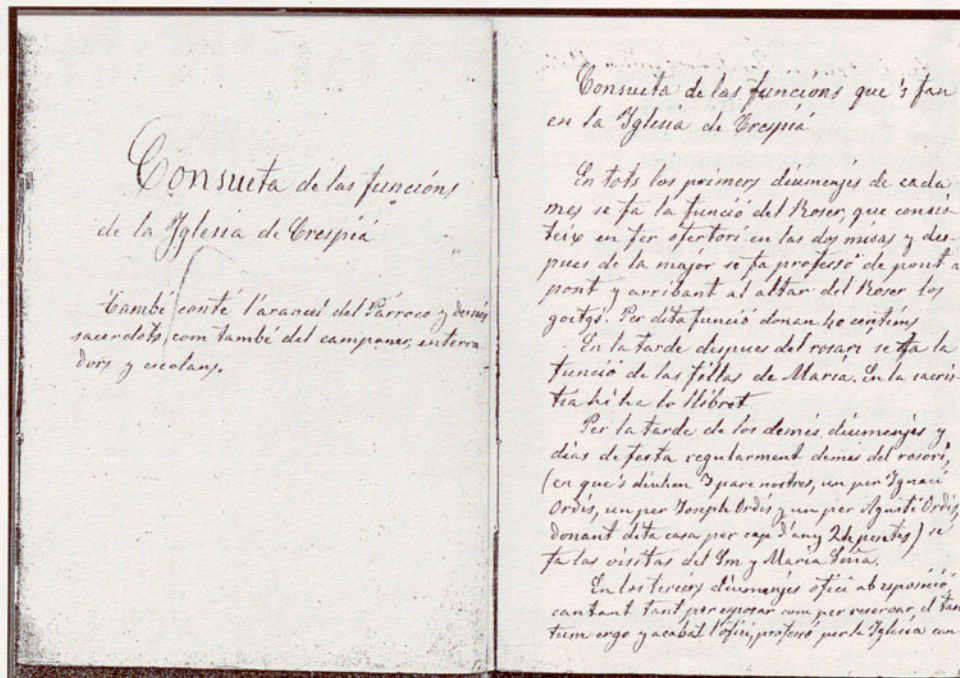 Consueta de las funcións
de la Yglesia de Crespiá
També conté l'arancel del Párroco y demés
sacerdots, com també del campaner, enterra
dors, y escolans.
Consueta de las funcions que's fan
en la Yglesia de Crespiá
En tots los primers diumenjes de cada
mes se fa la funció del Roser, que consis-
teix en fer ofertori en las dos misas y des-
pues de la major se fa professó de pont a
pont y arribant al altar del Roser los
goitgs. Per dita funció donan 40 centims
En la tarde despues del rosari se fa la
funció de las fillas de María. En la sacris-
tia hi ha lo llibret
Per la tarde de los demés diumenjes y
dias de festa regularment demés del rosori,
(en que's diuhen 3 pare nostres, un per Ygnaci
Ordis, un per Joseph Ordis y un per Agustí Ordis,
donant dita casa per cap d'any 24 pesetas) se
fa las visitas del Sm y María Sma.
En los tercers diumenjes ofici ab esposició,
cantant tant per esposar com per reservar, el tan
tum ergo y acabat l'ofici, professó per la Yglesia can-